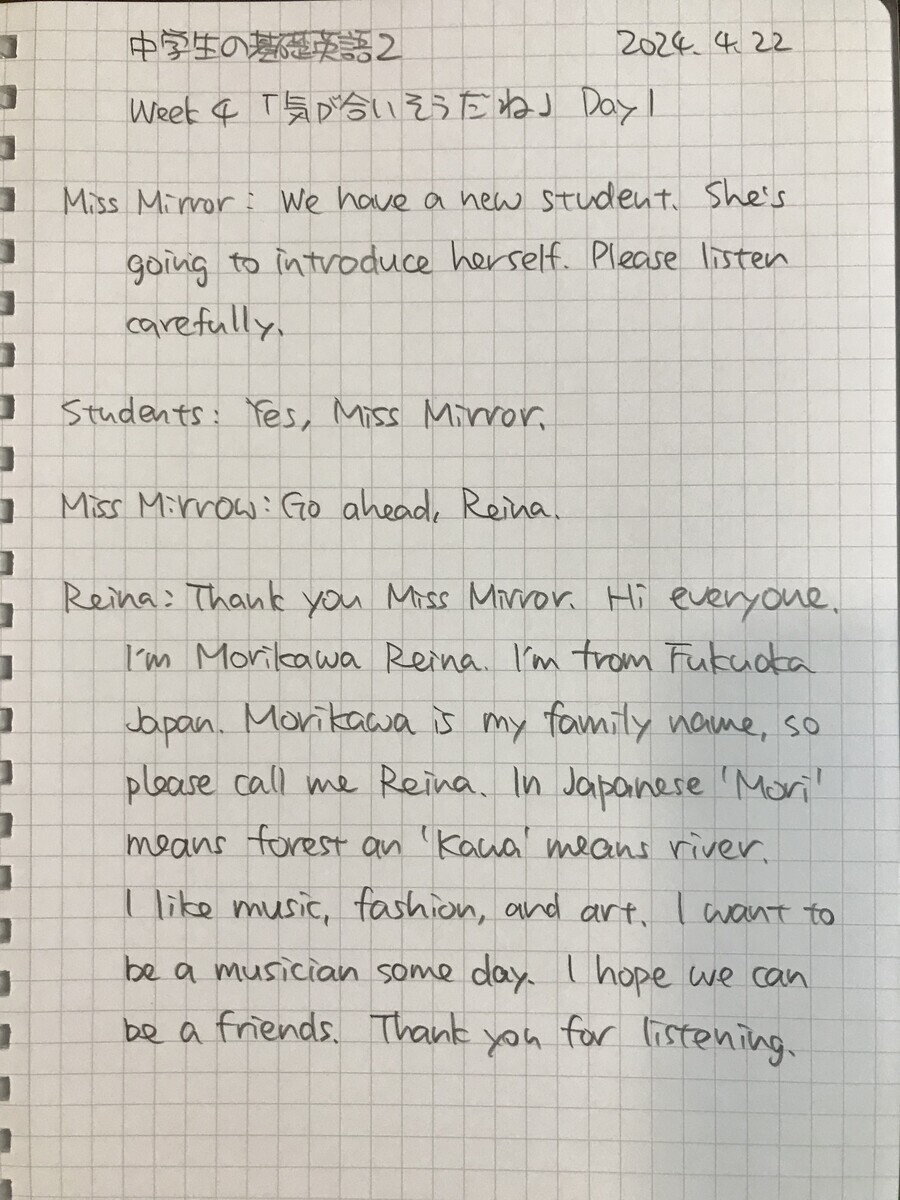 中学生の基礎英語2 2024.4.22
Week 4 「気が合いそうだね」 Day1
Miss Mirror: We have a new student. She's
going to introduce herself. Please listen
carefully.
Students: Yes, Miss Mirror.
Miss Mirrow: Go ahead, Reina.
Reina: Thank you Miss Mirror. Hi everyone.
I'm Morikawa Reina. I'm from Fukuoka
Japan. Morikawa is my family name, so
please call me Reina. In Japanese 'Mori'
means forest an 'Kawa' means river.
I like music, fashion, and art. I want to
be a musician some day. I hope we can
be a friends. Thank you for listening.